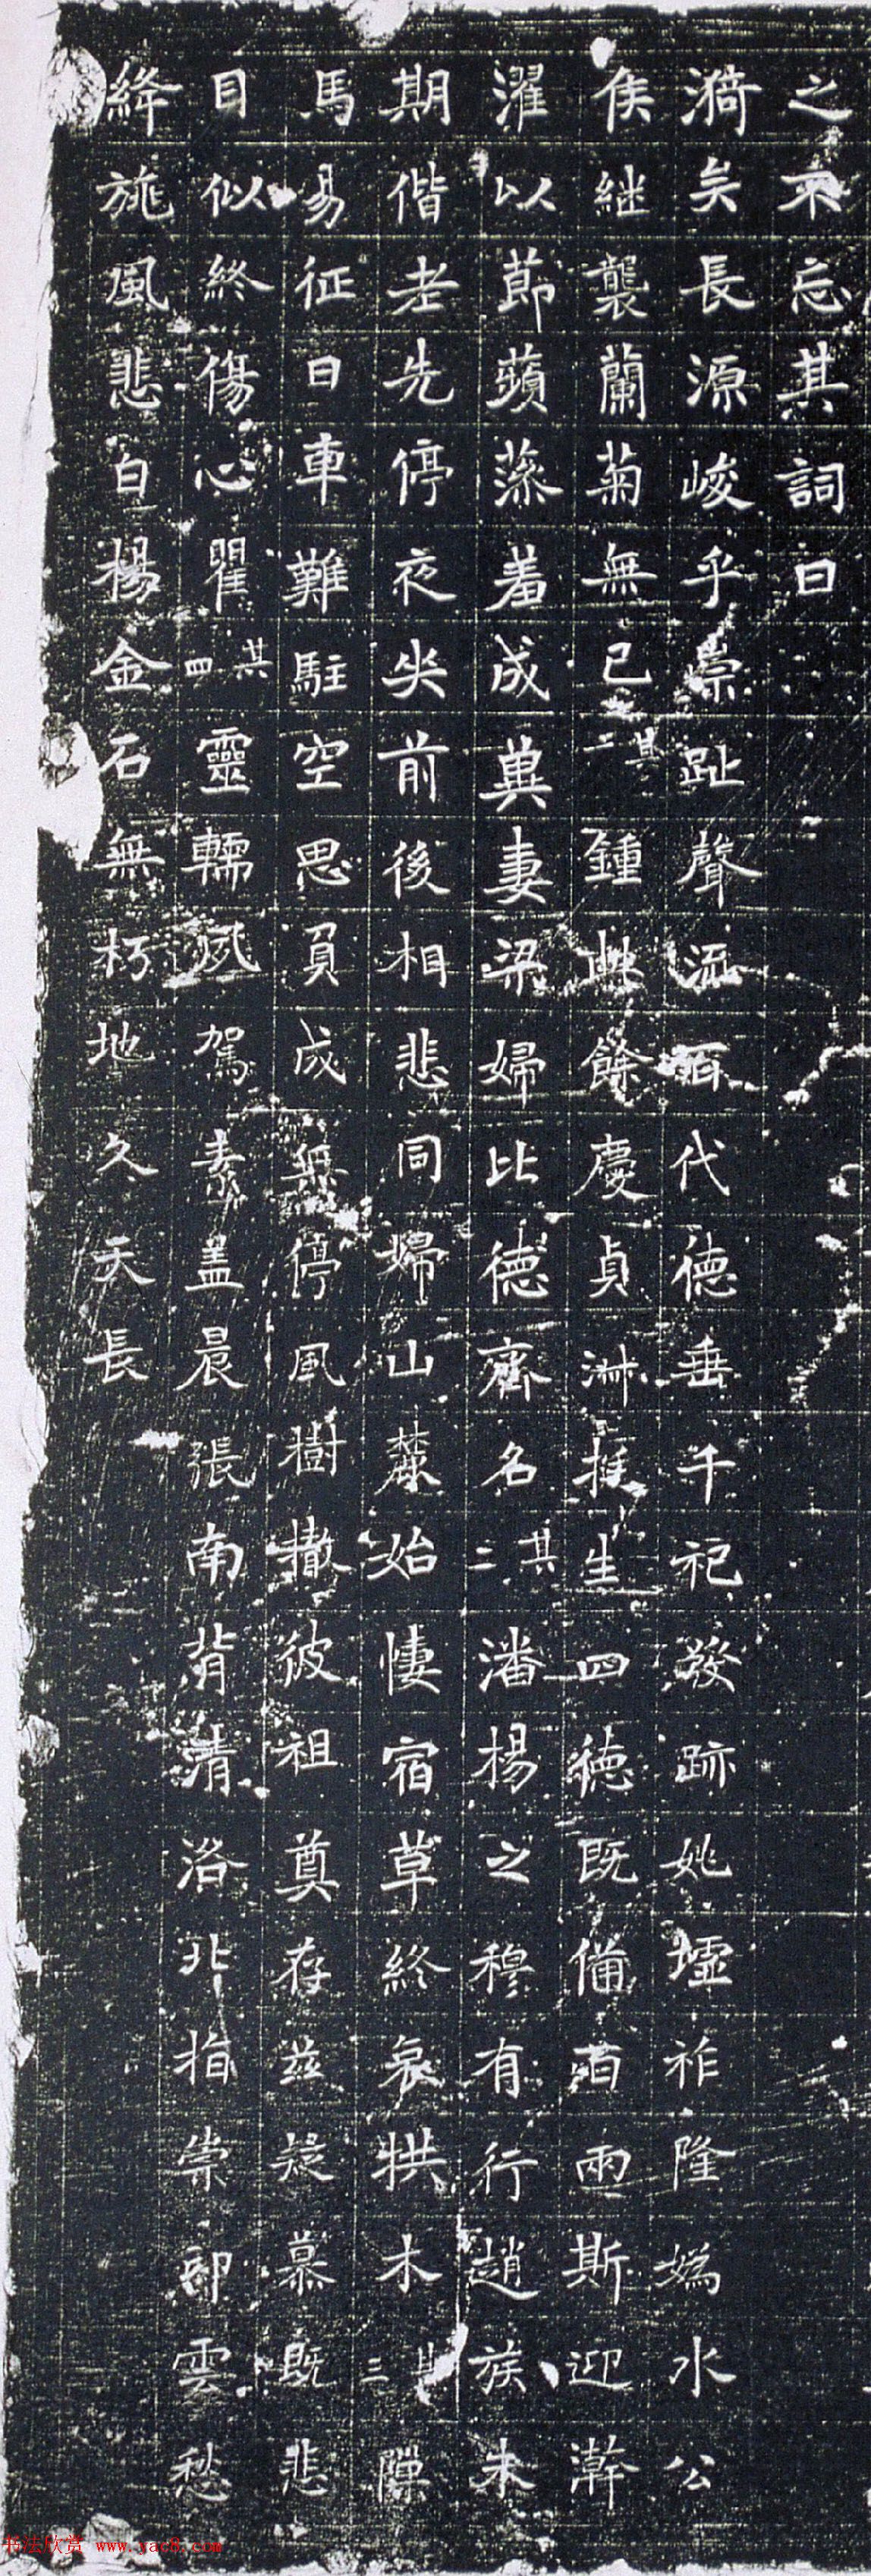 之不忘其詞曰
漪矣長源峻乎崇趾聲流百代德垂千祀發跡姚墟祚隆媯水公
侯継襲蘭菊無已其一鍾此餘慶貞淋挺生四德既備百兩斯迎澣
濯以莭蘋蘩羞成冀妻梁婦比德齊名其二潘楊之穆有行趙族未
期偕老先停夜哭前後相悲同歸山麓始悽宿草終哀拱木其三隙
馬易征日車難駐空思負成無停風樹撤彼祖奠存茲疑慕既悲
目似終傷心瞿其四靈轜夙駕素盖晨張南背清洛北指崇邙雲愁
絳旐風悲白楊金石無朽地久天長
书法欣赏 www.yac8.com